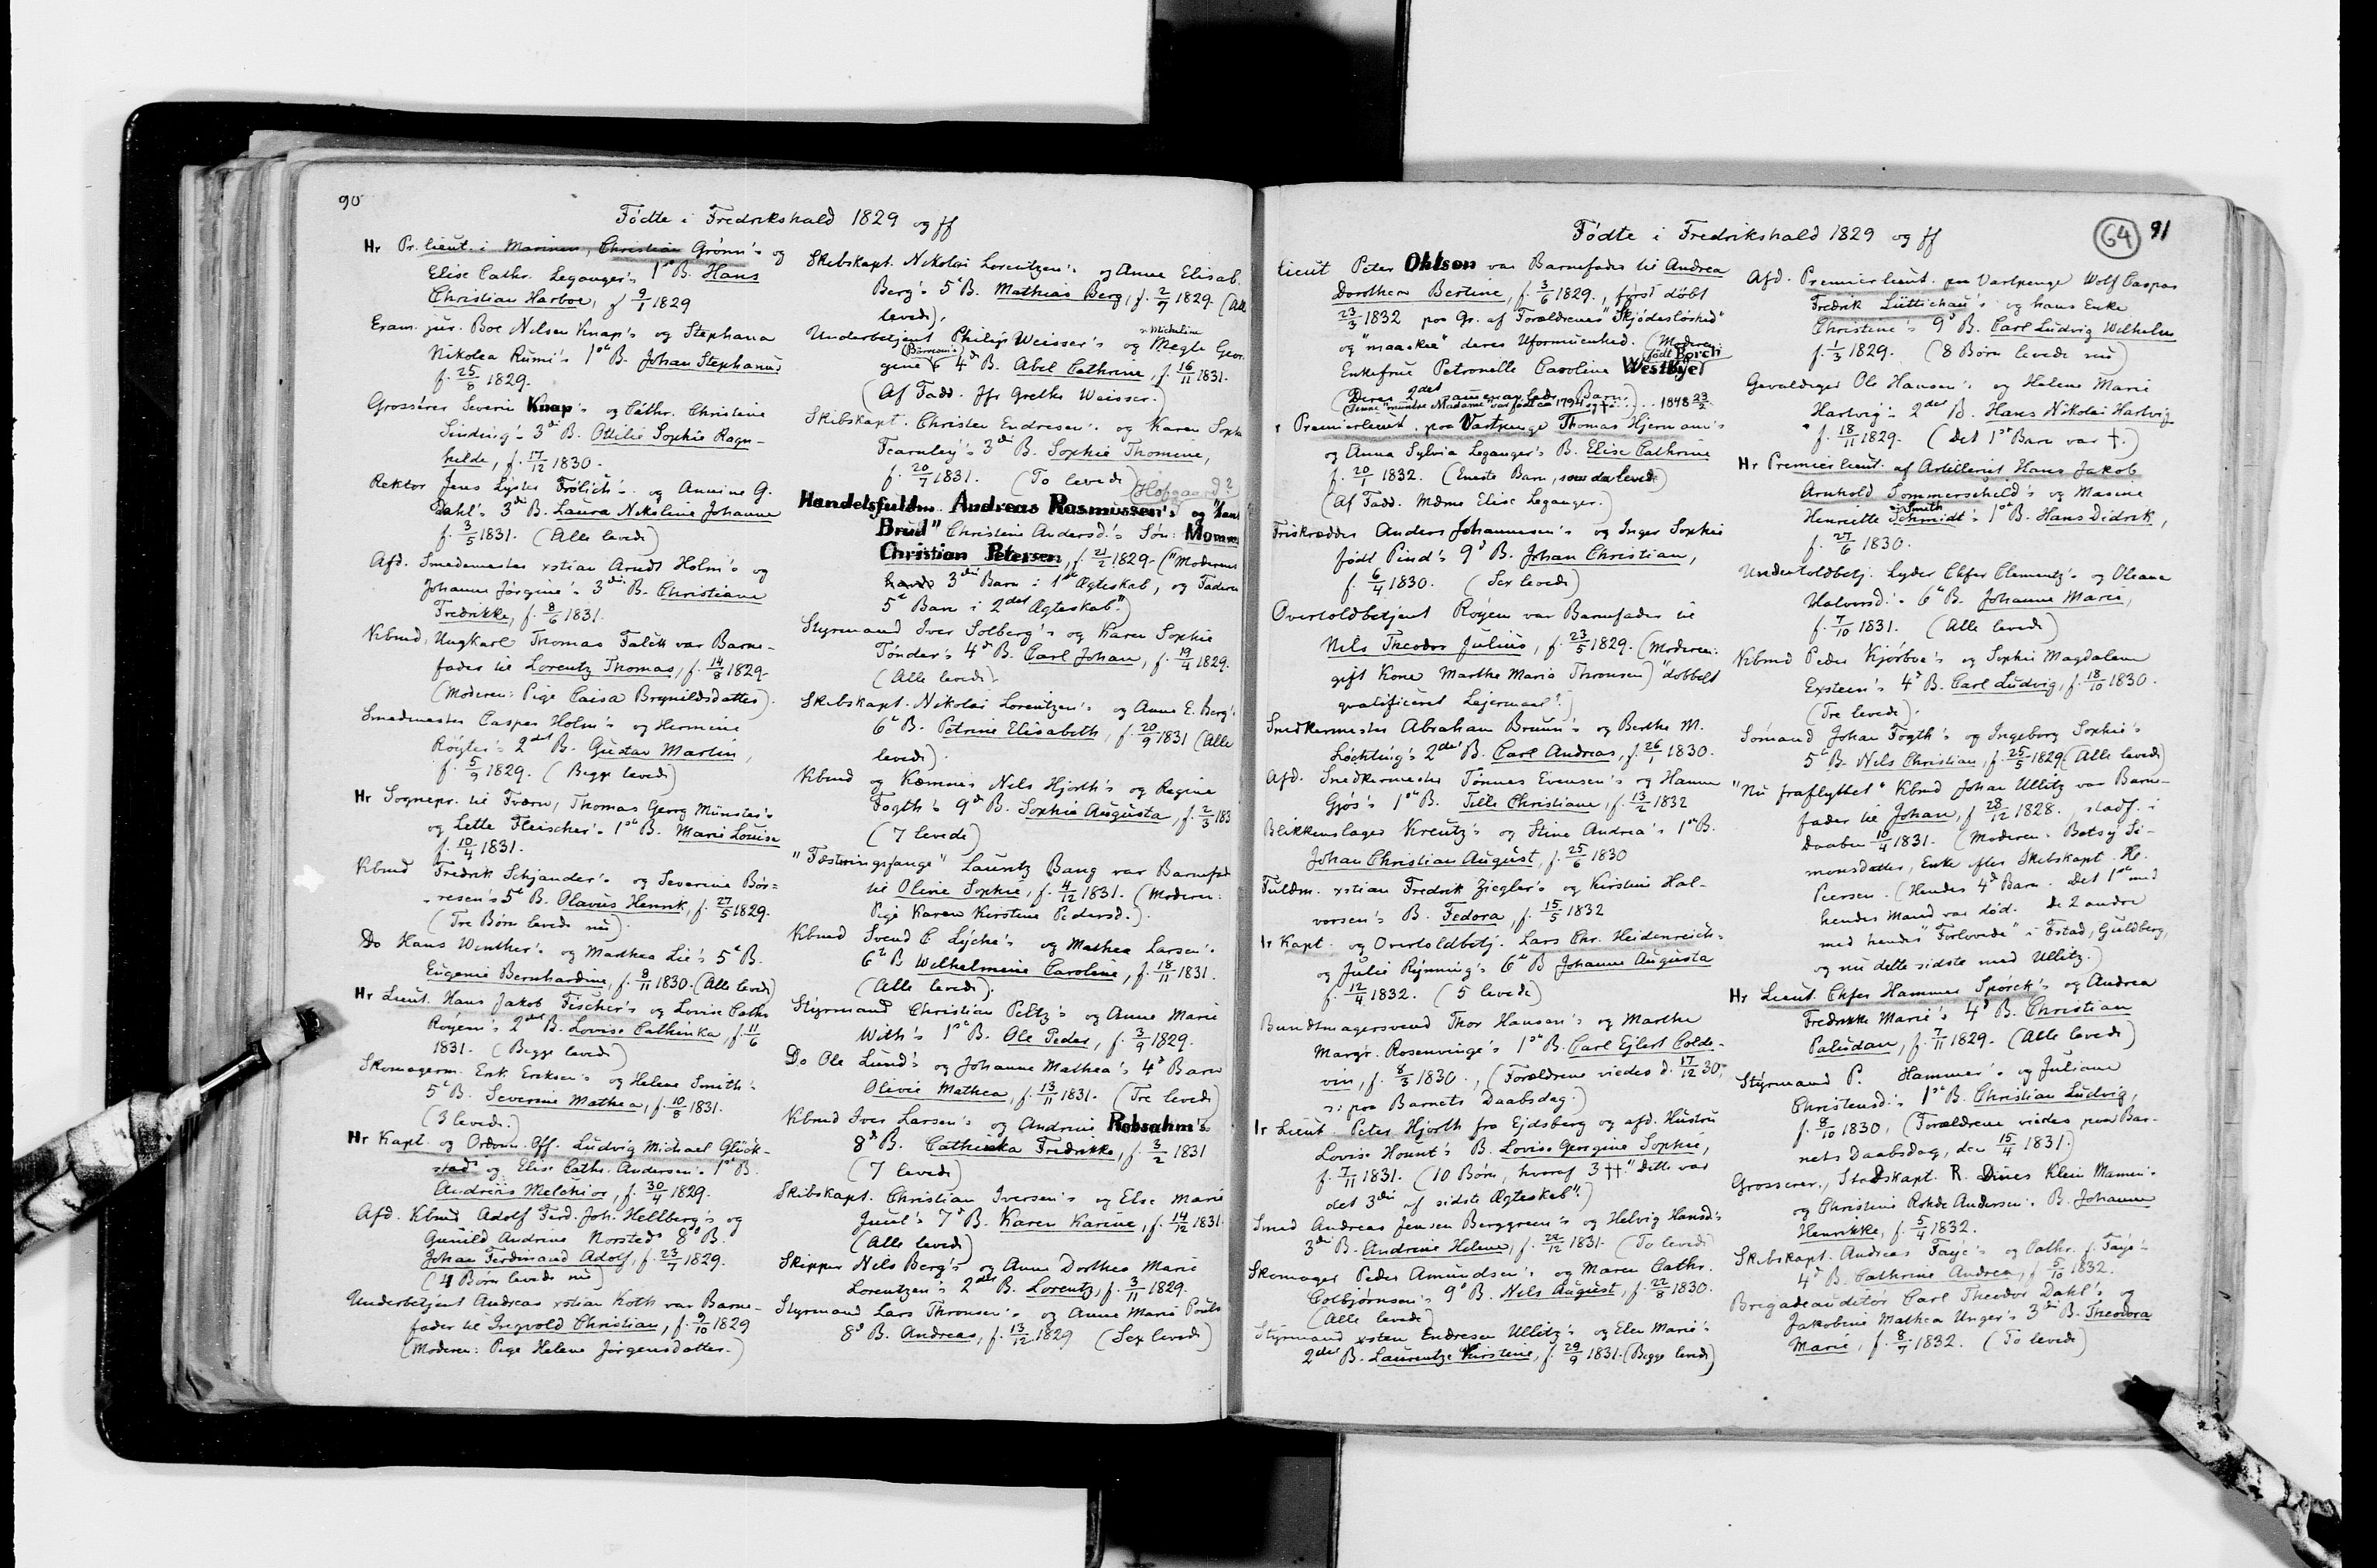 90
Födte i Fredrikshald 1829 og ff
Hr Pr. lieut. i Marinen, Christian Grönn's og
Elise Cathr. Leganger's 1ste B. Hans
Christian Harboe, f 9/1 1829
Exam. jur. Boe Nilsen Knap's og Stephana
Nikolea Rumi's 1ste B. Johan Stephanus
f. 25/8 1829.
Grosserer Severin Knap's og Cathr. Christine
Sinding's 3die B. Ottilie Sophie Ragn-
hilde, f. 17/12 1830.
Rektor Jens Lyder Frölich's og Annine G.
Dahl's 3die B. Laura Nikoline Johanne
f. 3/5 1831. (Alle leved)
Afd. Smedemester xstian Arndt Holm's og
Johanne Jörgine's 3die B. Christiane
Fredrikke, f. 8/6 1831.
Kbmd, Ungkarl Thomas Falch var Barne-
fader til Lorentz Thomas, f. 14/8 1829.
(Moderen: Pige Caisa Brynildsdatter).
Smedmester Casper Holm's og Hermine
Röyter's 2det B. Gustav Martin,
f. 5/9 1829. (Begge leved)
Hr Sognepr. til Tværn, Thomas Georg Münster's
og Lette Fleischer's 1ste B. Marie Louise
f. 10/4 1831.
Kbmd Fredrik Schjander's og Severine Bör=
resen's 5te B. Olavus Henrik, f. 27/5 1829.
(Tre Børn levede nu).
Do Hans Winther's og Marthea Lie's 5te B.
Eugenie Bernhardine, f. 8/11 1830. (Alle leved)
Hr Lieut. Hans Jakob Fischer's og Lovise Cathr
Röyem's 2det B. Lovise Cathinka, f. 11/6
1831. (Begge leved)
Skomagerm. Erik Eriksen's og Helene Smith's
5te B. Severine Mathea, f. 10/8 1831.
(3 levede.)
Hr Kapt. og Ordonn. Off. Ludvig Michael Glück-
stads og Elise Cathr. Andersen's 1ste B.
Andreas Melchior, f. 30/4 1829.
Afd. Kbmd Adolf Ferd. Joh. Hellberg's og
Gunild Andrine Norsteds 8de B.
Johan Ferdinand Adolf, f. 23/7 1829.
(4 Børn levede nu)
Underbetjent Andreas xstian Koth var Barne-
fader til Ingvold Christian, f. 9/10 1829
(Moderen: Pige Helene Jörgensdatter.)
Skibskapt. Nikolai Lorentzen's og Anne Elisab.
Berg's 5te B. Mathias Berg, f. 2/7 1829. (Alle
levede).
Underbetjent Philip Weisser's og Megle Geor
gine 4de B. Abel Cathrine, f. 16/11 1831.
(Af Fadd. Jfr Grethe Weisser.)
Skibskapt. Christen Endresen's og Karen Soph
Fearnley's 3die B. Sophie Thomine,
f. 20/7 1831. (To levede) (Hofgaard?)
Handelsfuldm. Andreas Rasmussen's og "hans
Brud" Christine Andersd.'s Sön: Momme
Christian Petersen, f. 21/2 1829. ("Moderens
3die Barn i 1ste Ægteskab, og Faderens
5te Barn i 2det Ægteskab.")
Styrmand Iver Solberg's og Karen Sophie
Tönder's 4de B. Carl Johan, f. 19/4 1829.
(Alle levede).
Skibskapt. Nikolai Lorentzen's og Anne E. Berg's
6te B. Petrine Elisabeth, f. 20/9 1831 (Alle
levede).
Kbmd og Kæmner Nils Hjorth's og Regine
Fogth's 9de B. Sophie Augusta, f. 2/3 183
(7 levede)
"Fæstningsfange" Lauritz Bang var Barnefad
til Oline Sophie, f. 4/12 1831. (Moderen:
Pige Karen Kirstine Pedersd.).
Kbmd Svend C Lyche's og Mathea Larsen's
6te B. Wilhelmine Caroline, f. 18/11 1831.
(Alle levede).
Styrmand Christian Peltz's og Anne Marie
With's 1ste B. Ole Peder, f. 3/9 1829.
Do Ole Lund's og Johanne Mathea's 4de Barn
Olivie Mathea, f. 13/11 1831. (Tre levede)
Kbmd Iver Larsen's og Andrine Robsahm's
8de B. Cathinka Fredrikke, f. 3/2 1831
(7 levede)
Skibskapt. Christian Iversen's og Else Marie
Juul's 7de B. Karen Karine, f. 14/12 1831.
(Alle levede)
Skipper Nils Berg's og Anne Dorthea Marie
Lorentzen's 2det B. Lorentz, f. 3/11 1829.
Styrmand Lars Thronsen's og Anne Marie Pouls
8de B. Andreas, f. 13/12 1829 (Sex levede)
Födte i Fredrikshald 1829 og ff
64 91
Lieut Peter Ohlson var Barnefader til Andrea
Dorothea Bertine, f. 3/6 1829., först döbt
23/3 1832 paa Gr. af Forældrenes "Skjödeslöshed"
og "maaskee" deres Uformuenhed. (Moderen:
Enkefrue Petronelle Caroline Westbye født Borch
(Deres 2det Barn.)
1848 23/2
Premierlieut. paa Vartpenge Thomas Hjermann's
og Anna Sylvia Leganger's B. Elise Cathrine
f. 20/1 1832. (Eneste Barn, som da leved)
(Af Fadd. Mdme Elise Leganger.)
Friskrædder Anders Johannesen's og Inger Sophie
født Pind's 9de B. Johan Christian,
f. 6/4 1830. (Sex levede)
Overtoldbetjent Röyem var Barnefader til
Nils Theodor Julius, f. 23/5 1829. (Moderen:
gift Kone Marthe Maria Thronsen) "dobbelt
qvalificeret Lejermaal".)
Snedkermester Abraham Bruun's og Berthe M.
Löchting's 2det B. Carl Andreas, f. 26/1 1830.
Afd. Snedkermester Tönnes Evensen's og Hanne
Gjös's 1ste B. Tille Christiane, f. 13/2 1832
Blikkenslager Kreutz's og Stine Andrea's 1ste B.
Johan Christian August, f. 25/6 1830
Fuldm. xstian Fredrik Ziegler's og Kirstine Hal-
vorsen's B. Fedora, f. 15/5 1832
Hr Kapt. og Overtoldbetj. Lars Chr. Heidenreich's
og Julie Rynning's 6te B Johanne Augusta
f. 12/4 1832. (5 levede)
Bundtmagersvend Thor Hansen's og Marthe
Margr. Rosenvinge's 1ste B. Carl Ejlert Colde-
vin, f. 8/3 1830., (Forældrene viedes d. 17/12 30,
ɔ: paa Barnets Daabsdag.)
Hr Lieut. Peter Hjorth fra Ejdsberg og afd. Hustru
Lovise Hount's B. Lovise Georgine Sophie,
f. 7/11 1831. (10 Børn, hvoraf 3 ††. "Dette var
det 3die af sidste Ægteskab".)
Smed Andreas Jensen Berggreen's og Helvig Hansd's
3die B. Andrine Helene, f. 24/12 1831. (To levede)
Skomager Peder Amundsen's og Maren Cathr.
Colbjörnsen's 9de B. Nils August, f. 22/8 1830.
(Alle levede)
Styrmand xsten Endresen Ullitz's og Elen Marie's
2det B. Laurentze Kirstine, f. 29/9 1831. (Begge levede)
Afd. Premierlieut. paa Vartpenge Wolf Caspar
Fredrik Lüttichau's og hans Enke
Christine's 9de B. Carl Ludvig Wilhelm
f. 1/3 1829. (8 Børn levede nu)
Gevaldiger Ole Hansen's og Helene Marie
Hartvig's 2det B. Hans Nikolai Hartvig
f. 18/11 1829. (Det 1ste Barn var †.)
Hr Premierlieut. af Artilleriet Hans Jakob
Arnhold Sommerschild's og Maxine
Henriette Schmidt's Smith 1ste B. Hans Didrik,
f. 27/6 1830.
Undertoldbetj. Lyder Chfer Clementz's og Oleana
Halvorsd.'s 6te B. Johanne Marie,
f. 7/10 1831. (Alle levede)
Kbmd Peder Kjörboe's og Sophie Magdalene
Exsteen's 4de B. Carl Ludvig, f. 18/10 1830.
(Tre levede).
Sömand Johan Fogth's og Ingeborg Sophie's
5te B. Nils Christian, f. 25/5 1829. (Alle levede)
"Nu fraflyttet" Kbmd Johan Ullitz var Barne-
fader til Johan, f 28/12 1828. stadf. i
Daaben 10/4 1831. (Moderen: Betsy Si-
monsdatter, Enke efter Skibskapt. H.
Peersen. (Hendes 4de Barn. Det 1ste med
hendes Mand var død. De 2 andre
med hendes "Forlovede" i Fstad, Guldberg,
og nu dette sidste med Ullitz.)
Hr Lieut. Chfer Hammer Spörck's og Andrea
Fredrikke Marie's 4de B. Christian
Paludan, f. 7/11 1829. (Alle levede)
Styrmand P. Hammer's og Juliane
Christensd.'s 1ste B. Christian Ludvig,
f. 8/10 1830. (Forældrene viedes paa Bar-
nets Daabsdag, den 15/4 1831.)
Grosserer, Stadskapt. R. Dines Klein Mamen's
og Christine Rohde Andersen's B. Johanne
Henrikke, f. 5/4 1832.
Skibskapt. Andreas Faye's og Cathr. f. Faye's
4de B. Cathrine Andrea, f 5/10 1832.
Brigadeauditör Carl Theodor Dahl's og
Jakobine Mathea Unger's 3die B. Theodora
Marie, f. 8/7 1832. (To levede)